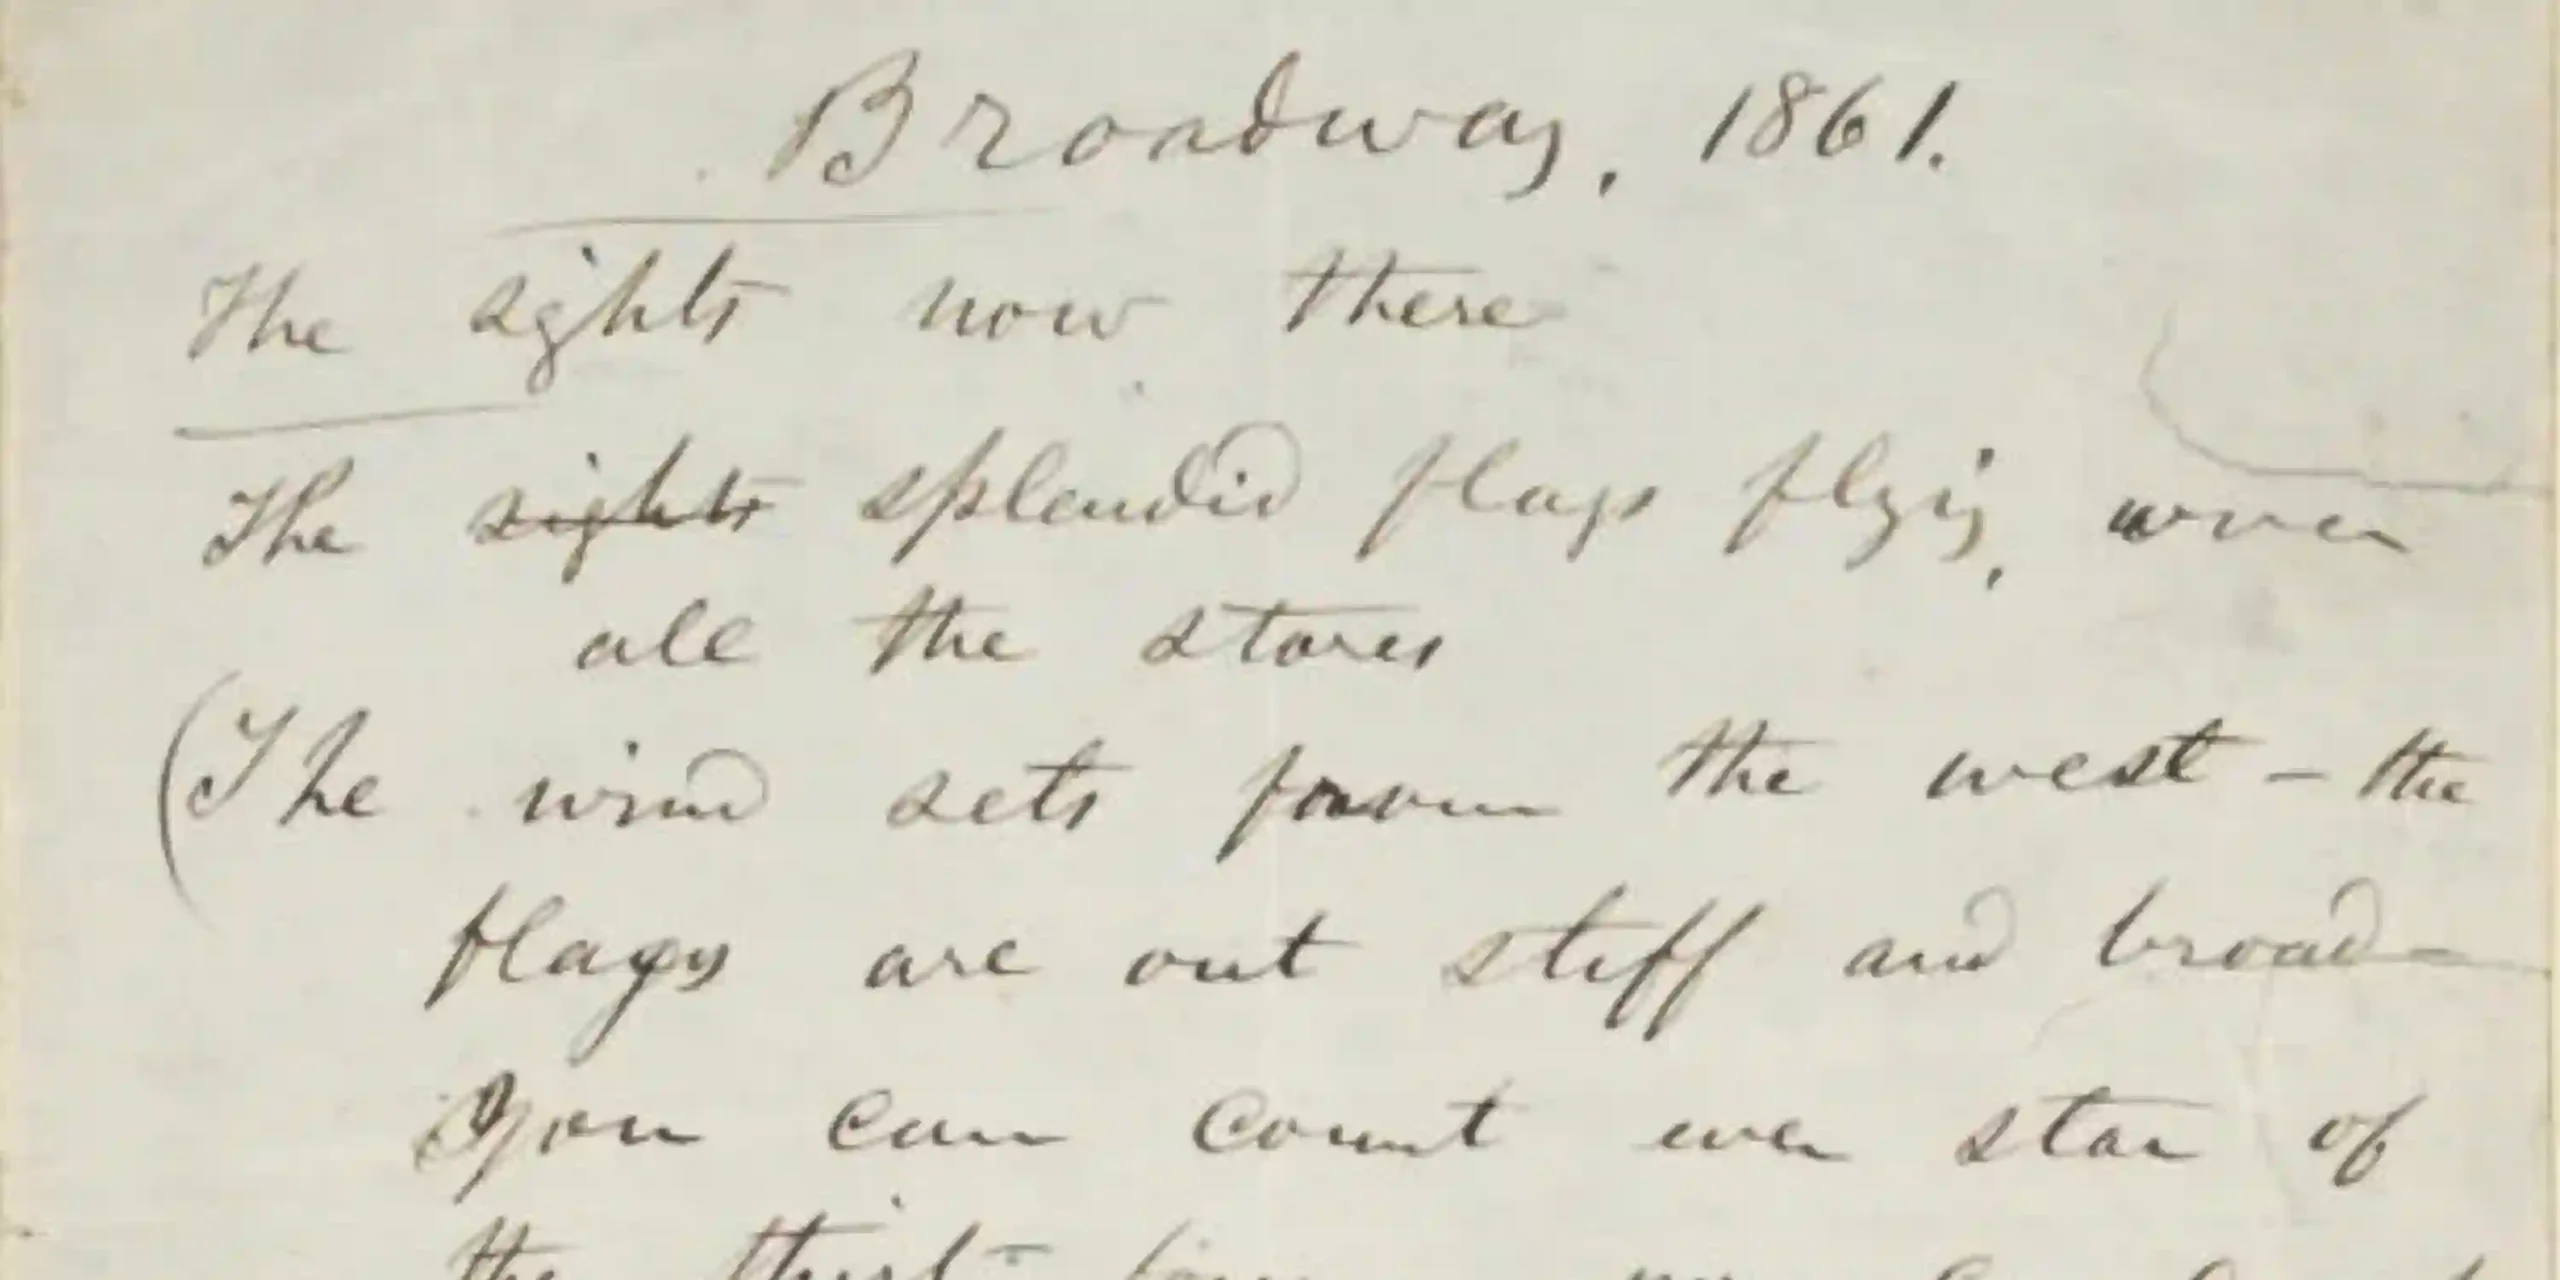 Broadway, 1861.
The sights now there
The sights splendid flags flying, over
all the stores
(The wind sets from the west – the
flags are out stiff and broad –
You can count ever star of
the thirt-four